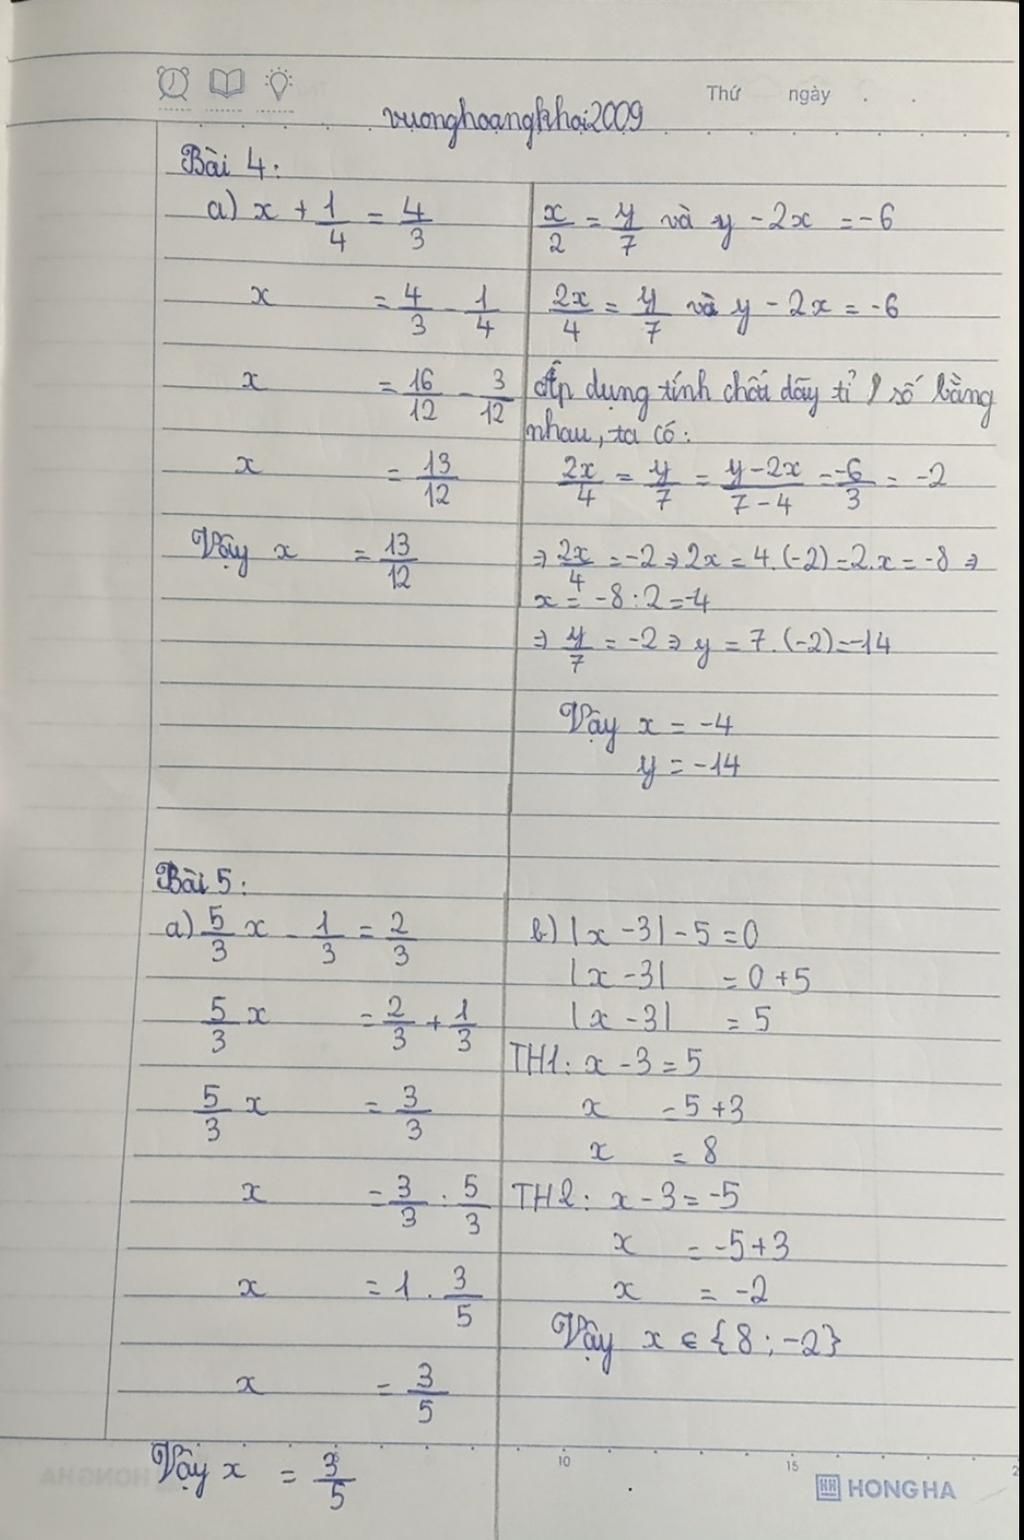 Thứ ngày . .
vuonghoangkhai2009
Bài 4:
a) x + 1/4 = 4/3
x = 4/3 - 1/4
x = 16/12 - 3/12
x = 13/12
Vậy x = 13/12
x/2 = y/7 và y - 2x = -6
2x/4 = y/7 và y - 2x = -6
Áp dụng tính chất dãy tỉ số bằng
nhau, ta có:
2x/4 = y/7 = y-2x/7-4 = -6/3 = -2
⇒ 2x/4 = -2 ⇒ 2x = 4.(-2) = 2.x = -8 ⇒
x = -8:2 = -4
⇒ y/7 = -2 ⇒ y = 7.(-2) = -14
Vậy x = -4
y = -14
Bài 5:
a) 5/3 x - 1/3 = 2/3
5/3 x = 2/3 + 1/3
5/3 x = 3/3
x = 3/3 : 5/3
x = 1 . 3/5
x = 3/5
Vậy x = 3/5
b) |x - 3| - 5 = 0
|x - 3| = 0 + 5
|x - 3| = 5
TH1: x - 3 = 5
x = 5 + 3
x = 8
TH2: x - 3 = -5
x = -5 + 3
x = -2
Vậy x ∈ {8; -2}
10 15
HH HONG HA